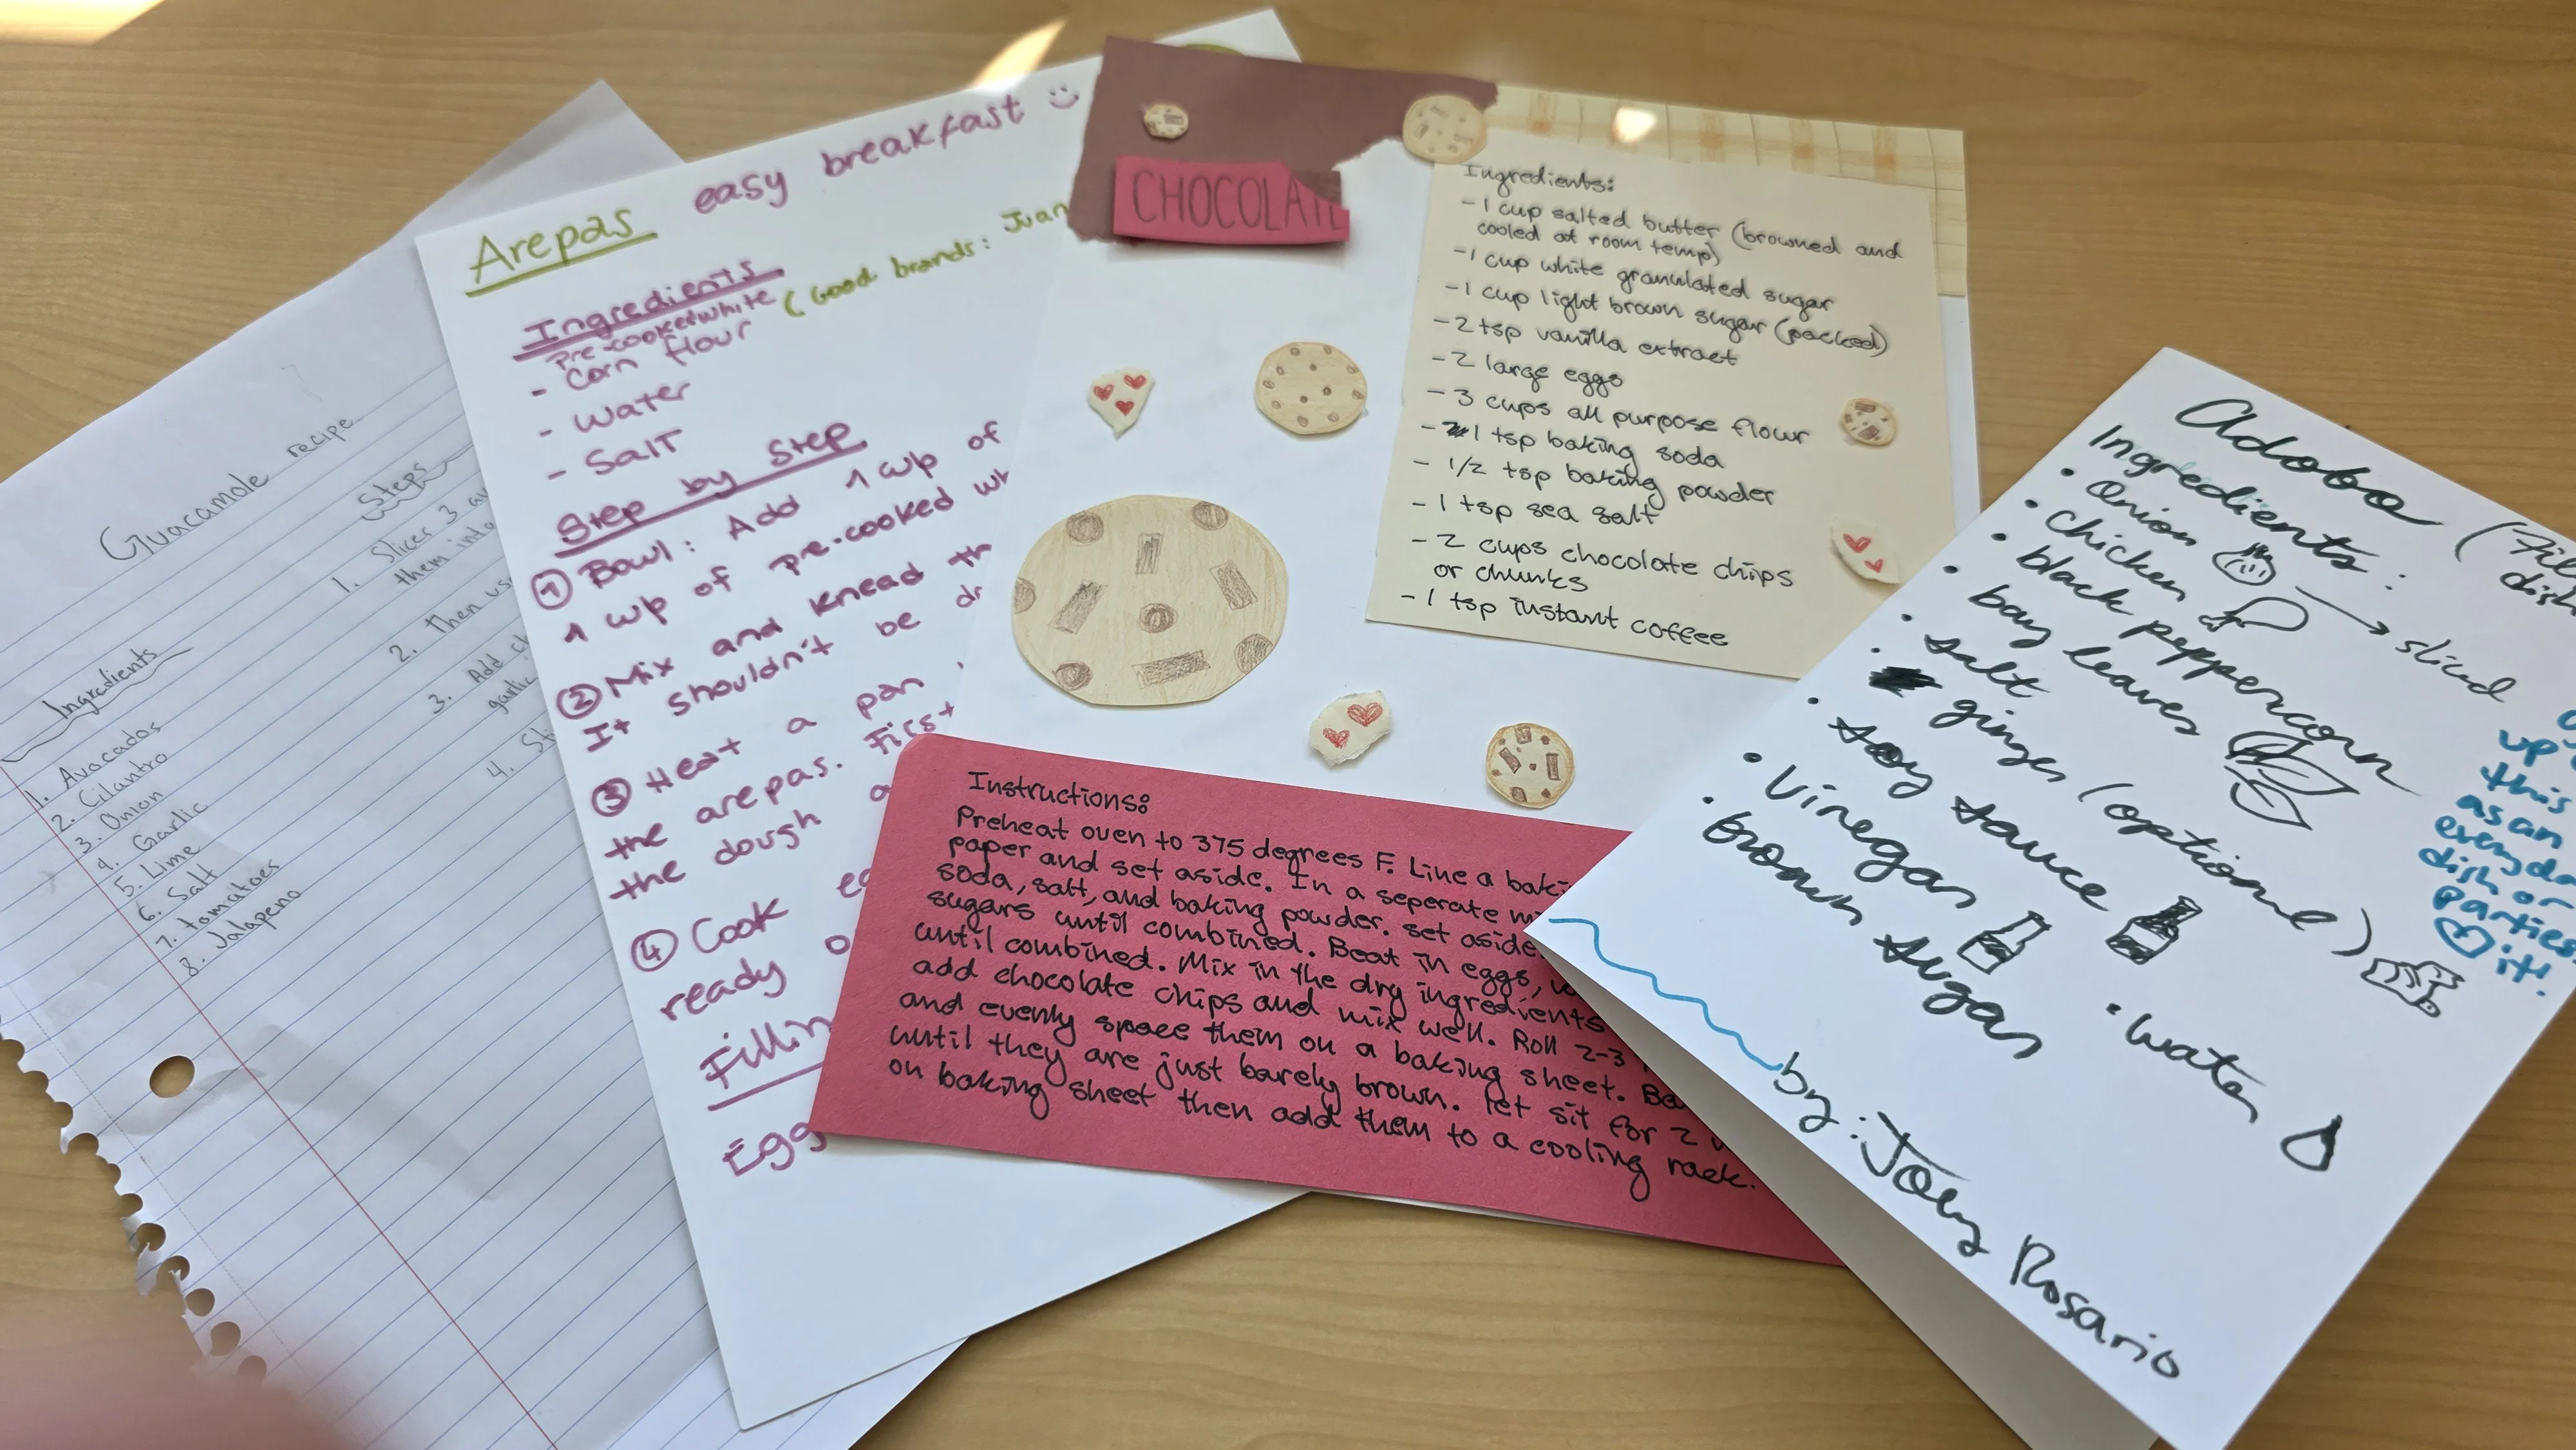 Guacamole recipe
Ingredients
1. Avocados
2. Cilantro
3. Onion
4. Garlic
5. Lime
6. Salt
7. tomatoes
8. Jalapeno
Steps
1. Slices 3
them into
2. Then use
3. Add
garlic
4.
Arepas easy breakfast
Ingredients
pre-cooked white
- Corn flour (Good brands: Juan
- Water
- Salt
Step by Step
1 Bowl: Add 1 cup of
1 cup of pre-cooked wh
2 Mix and knead th
It shouldn't be dr
3 Heat a pan
the arepas. First
the dough a
4 Cook ea
ready o
Fillin
Egg
CHOCOLATE
Ingredients:
- 1 cup salted butter (browned and
cooled at room temp)
- 1 cup white granulated sugar
- 1 cup light brown sugar (packed)
- 2 tsp vanilla extract
- 2 large eggs
- 3 cups all purpose flour
- 1 tsp baking soda
- 1/2 tsp baking powder
- 1 tsp sea salt
- 2 cups chocolate chips
or chunks
- 1 tsp instant coffee
Instructions:
Preheat oven to 375 degrees F. Line a baki
paper and set aside. In a seperate mi
soda, salt, and baking powder. set aside.
sugars until combined. Beat in eggs,
until combined. Mix in the dry ingredients
add chocolate chips and mix well. Roll 2-3
and evenly space them on a baking sheet. Ba
until they are just barely brown. let sit for 2
on baking sheet then add them to a cooling rack.
Adobo (Fil
dish
Ingredients:
• Onion → sliced
• Chicken
• black peppercorn
• bay leaves
• salt
• ginger (optional)
• soy sauce
• Vinegar
• brown sugar
• water
up
this
as an
everyda
dish or
parties
it!
by: Joey Rosario